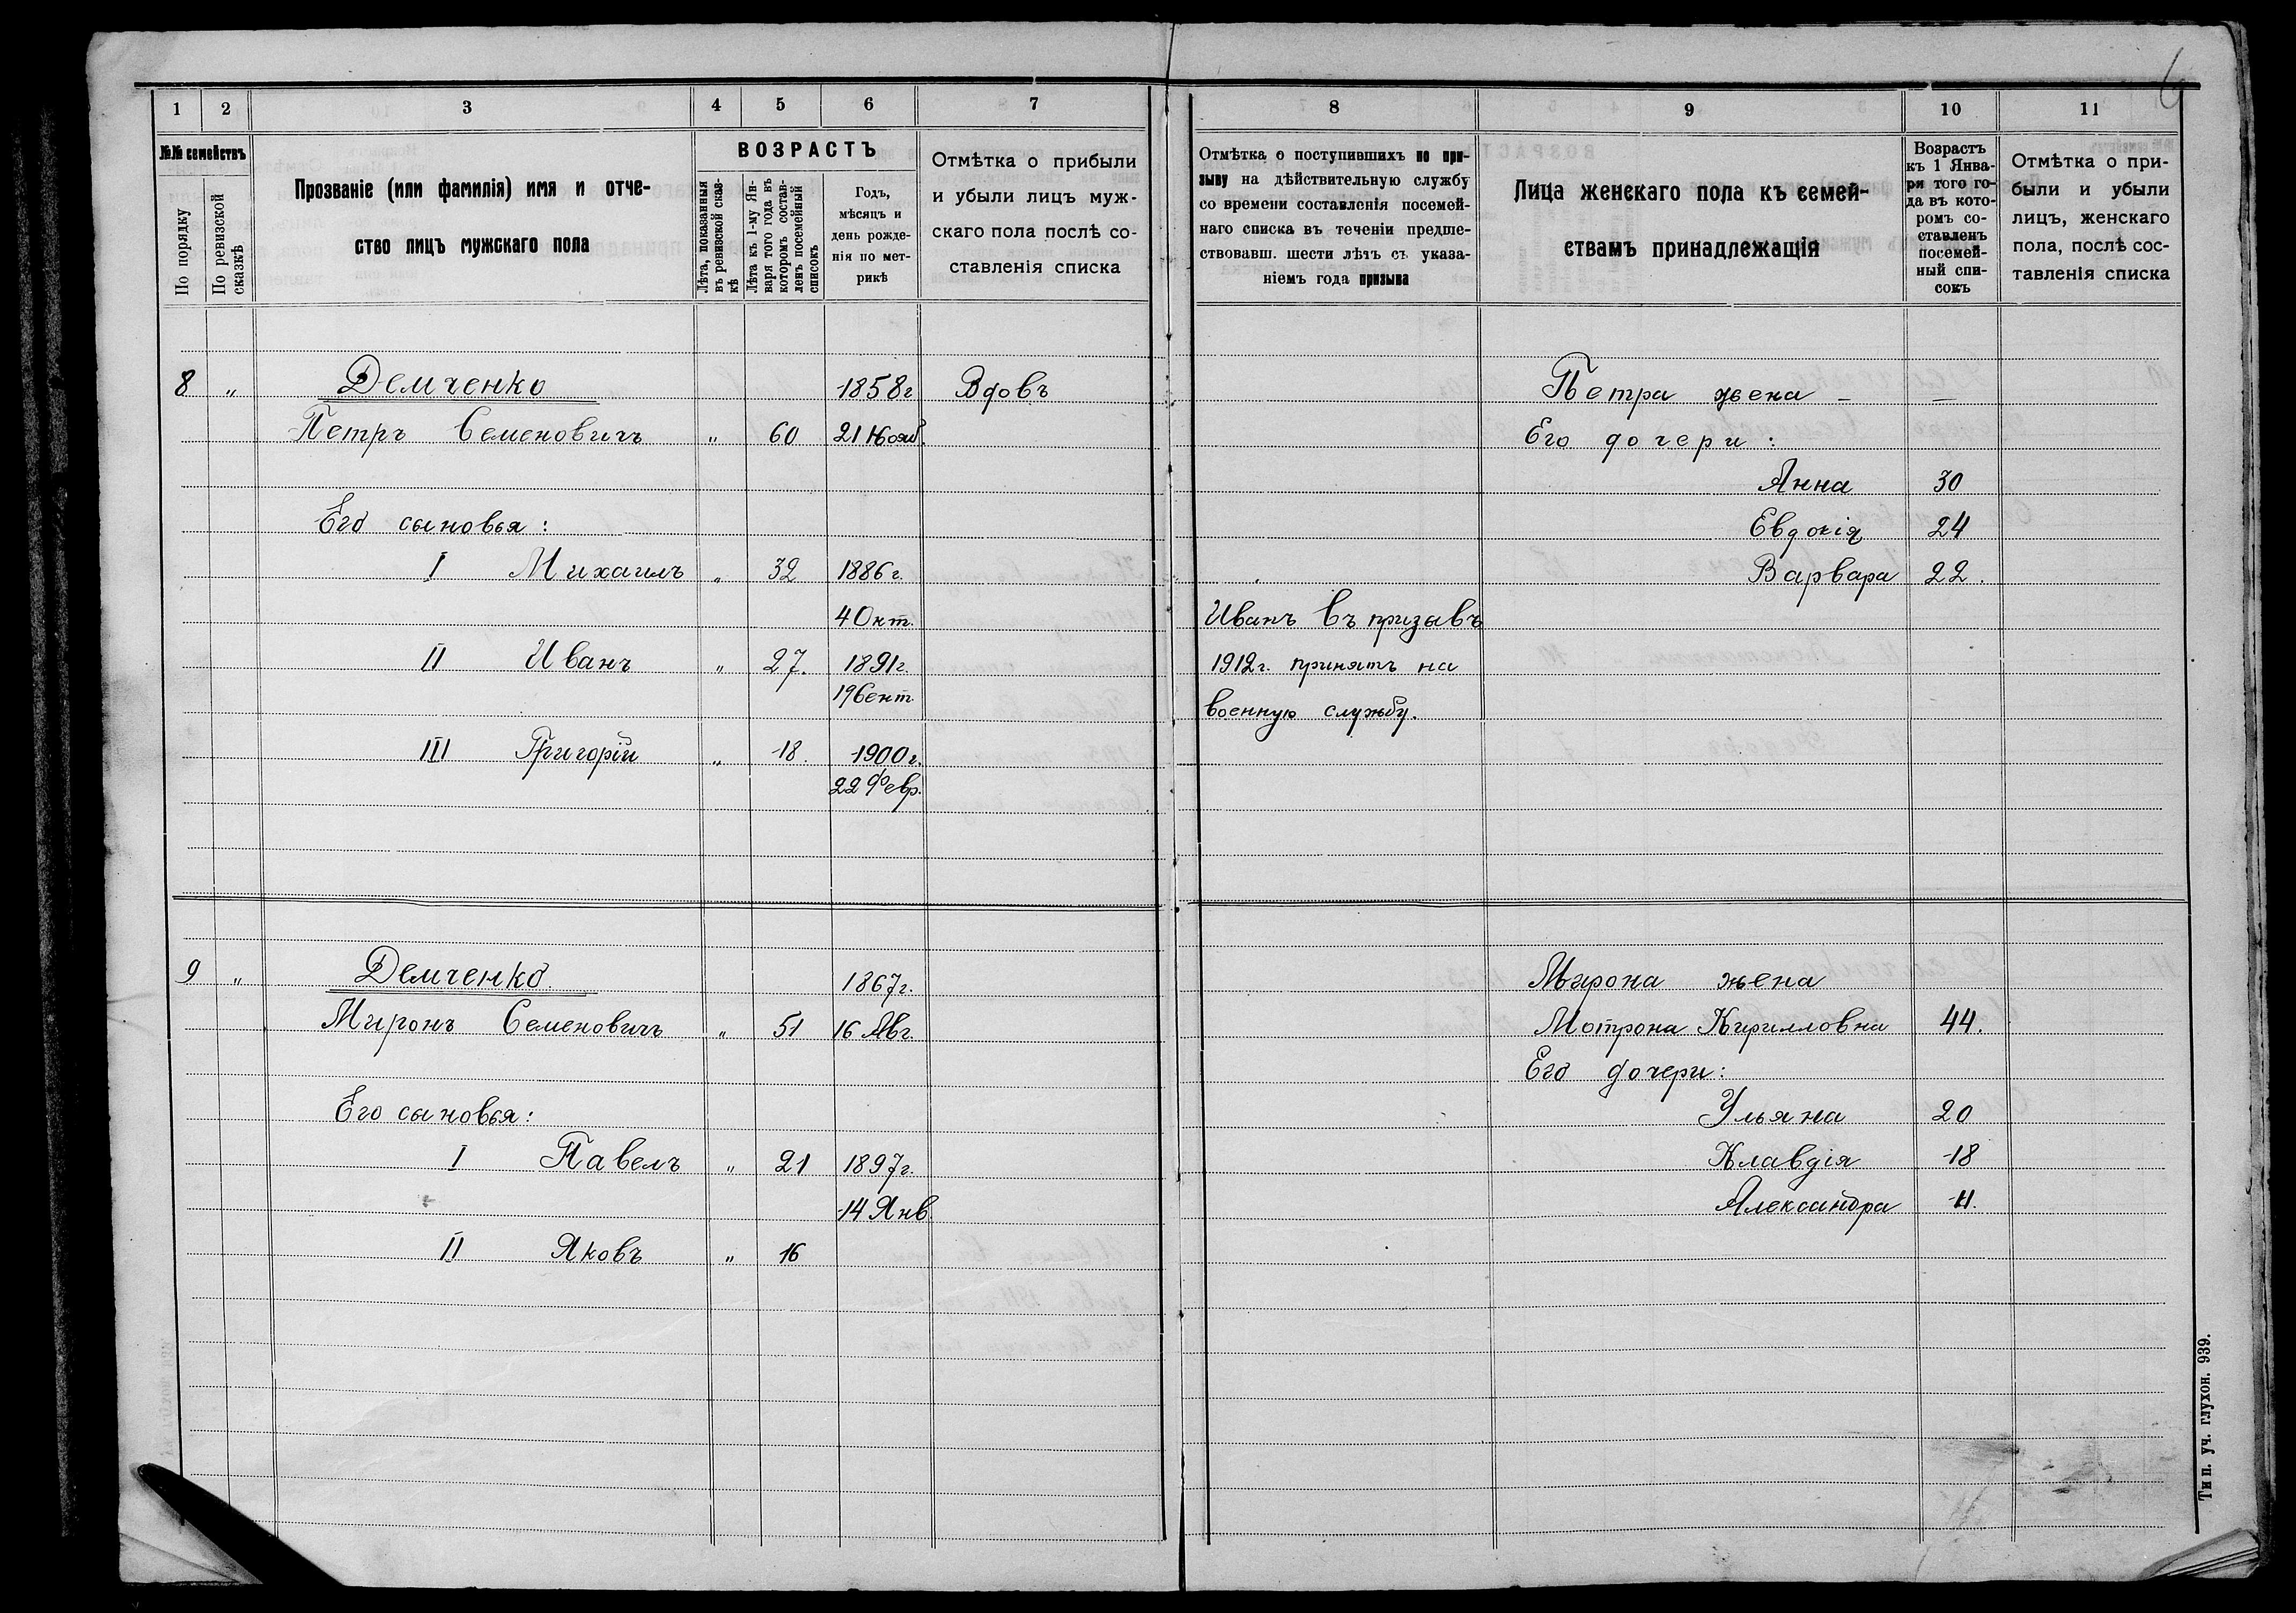 6
1 2 3 4 5 6 7
№№ семействъ
По порядку
По ревизской сказкѣ
Прозваніе (или фамилія) имя и отче-
ство лицъ мужскаго пола
ВОЗРАСТЪ
Лѣта, показанныя
въ ревизской сказ-
кѣ
Лѣта къ 1-му Ян-
варя того года въ
которомъ состав-
ленъ посемейный
списокъ
Годъ,
мѣсяцъ и
день рожде-
нія по мет-
рикѣ
Отмѣтка о прибыли
и убыли лицъ муж-
скаго пола послѣ со-
ставленія списка
8 „ Демченко 1858г Вдовъ
Петръ Семеновичъ „ 60 21 Нояб.
Его сыновья:
I Михаилъ „ 32 1886г.
4 Окт.
II Иванъ „ 27. 1891г.
19 Сент.
III Григорій „ 18. 1900г.
22 Февр.
9 „ Демченко. 1867г.
Миронъ Семеновичъ „ 51 16 Авг.
Его сыновья:
I Павелъ „ 21 1897г.
14 Янв.
II Яковъ „ 16
8 9 10 11
Отмѣтка о поступившихъ по при-
зыву на дѣйствительную службу
со времени составленія посемей-
наго списка въ теченіи предше-
ствовавш. шести лѣтъ съ указа-
ніемъ года призыва
Лица женскаго пола къ семей-
ствамъ принадлежащія
Возрастъ
къ 1 Янва-
ря того го-
да въ кото-
ромъ со-
ставленъ
посемей-
ный спи-
сокъ
Отмѣтка о при-
были и убыли
лицъ, женскаго
пола, послѣ сос-
тавленія списка
Петра жена – –
Его дочери:
Анна 30
Евдокія 24
Варвара 22.
Иванъ въ призывъ
1912г. принятъ на
военную службу.
Мирона жена
Мотрона Кирилловна 44.
Его дочери:
Ульяна 20
Клавдія 18
Александра 11.
Тип. уч. глухон. 939.